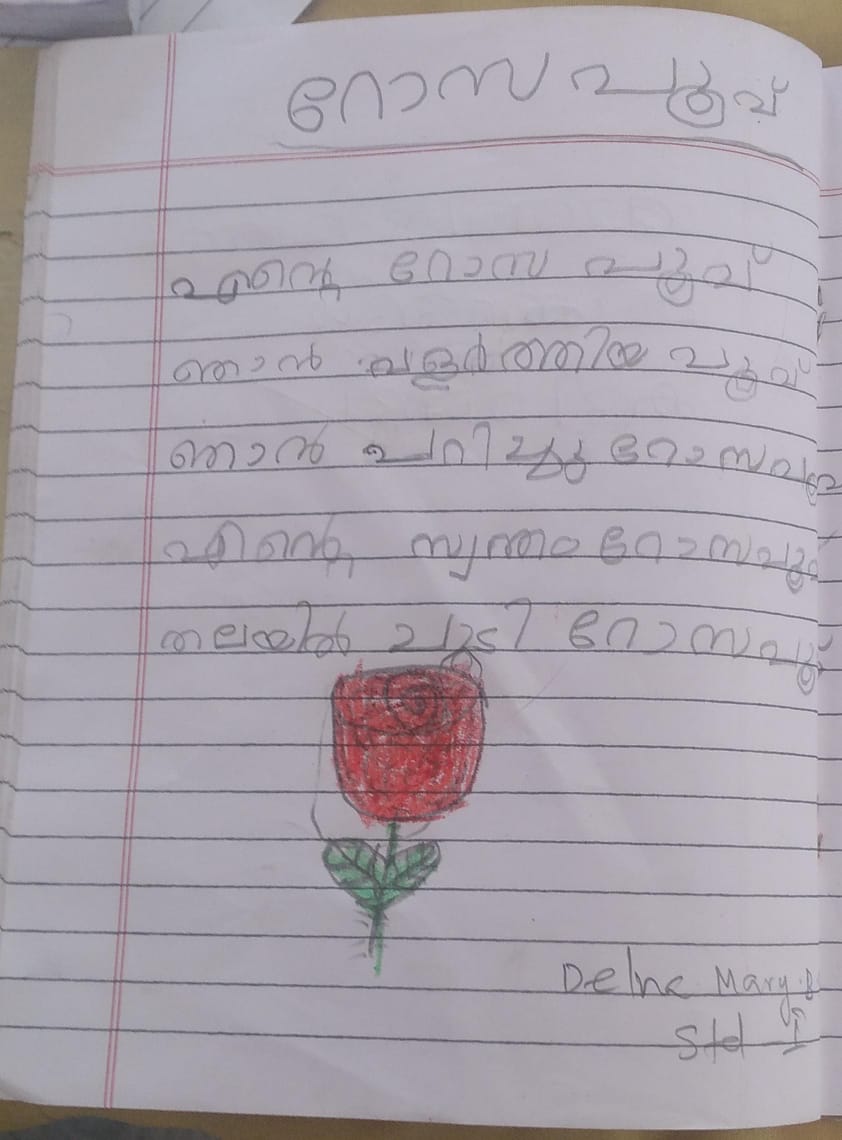 റോസ പൂവ്
എന്റെ റോസ പൂവ്
ഞാൻ വളർത്തിയ പൂവ്
ഞാൻ പറിച്ചു റോസപൂവ്
എന്റെ സ്വന്തം റോസപൂവ്
തലയിൽ ചൂടി റോസപൂവ്
Delna Mary.B
Std I